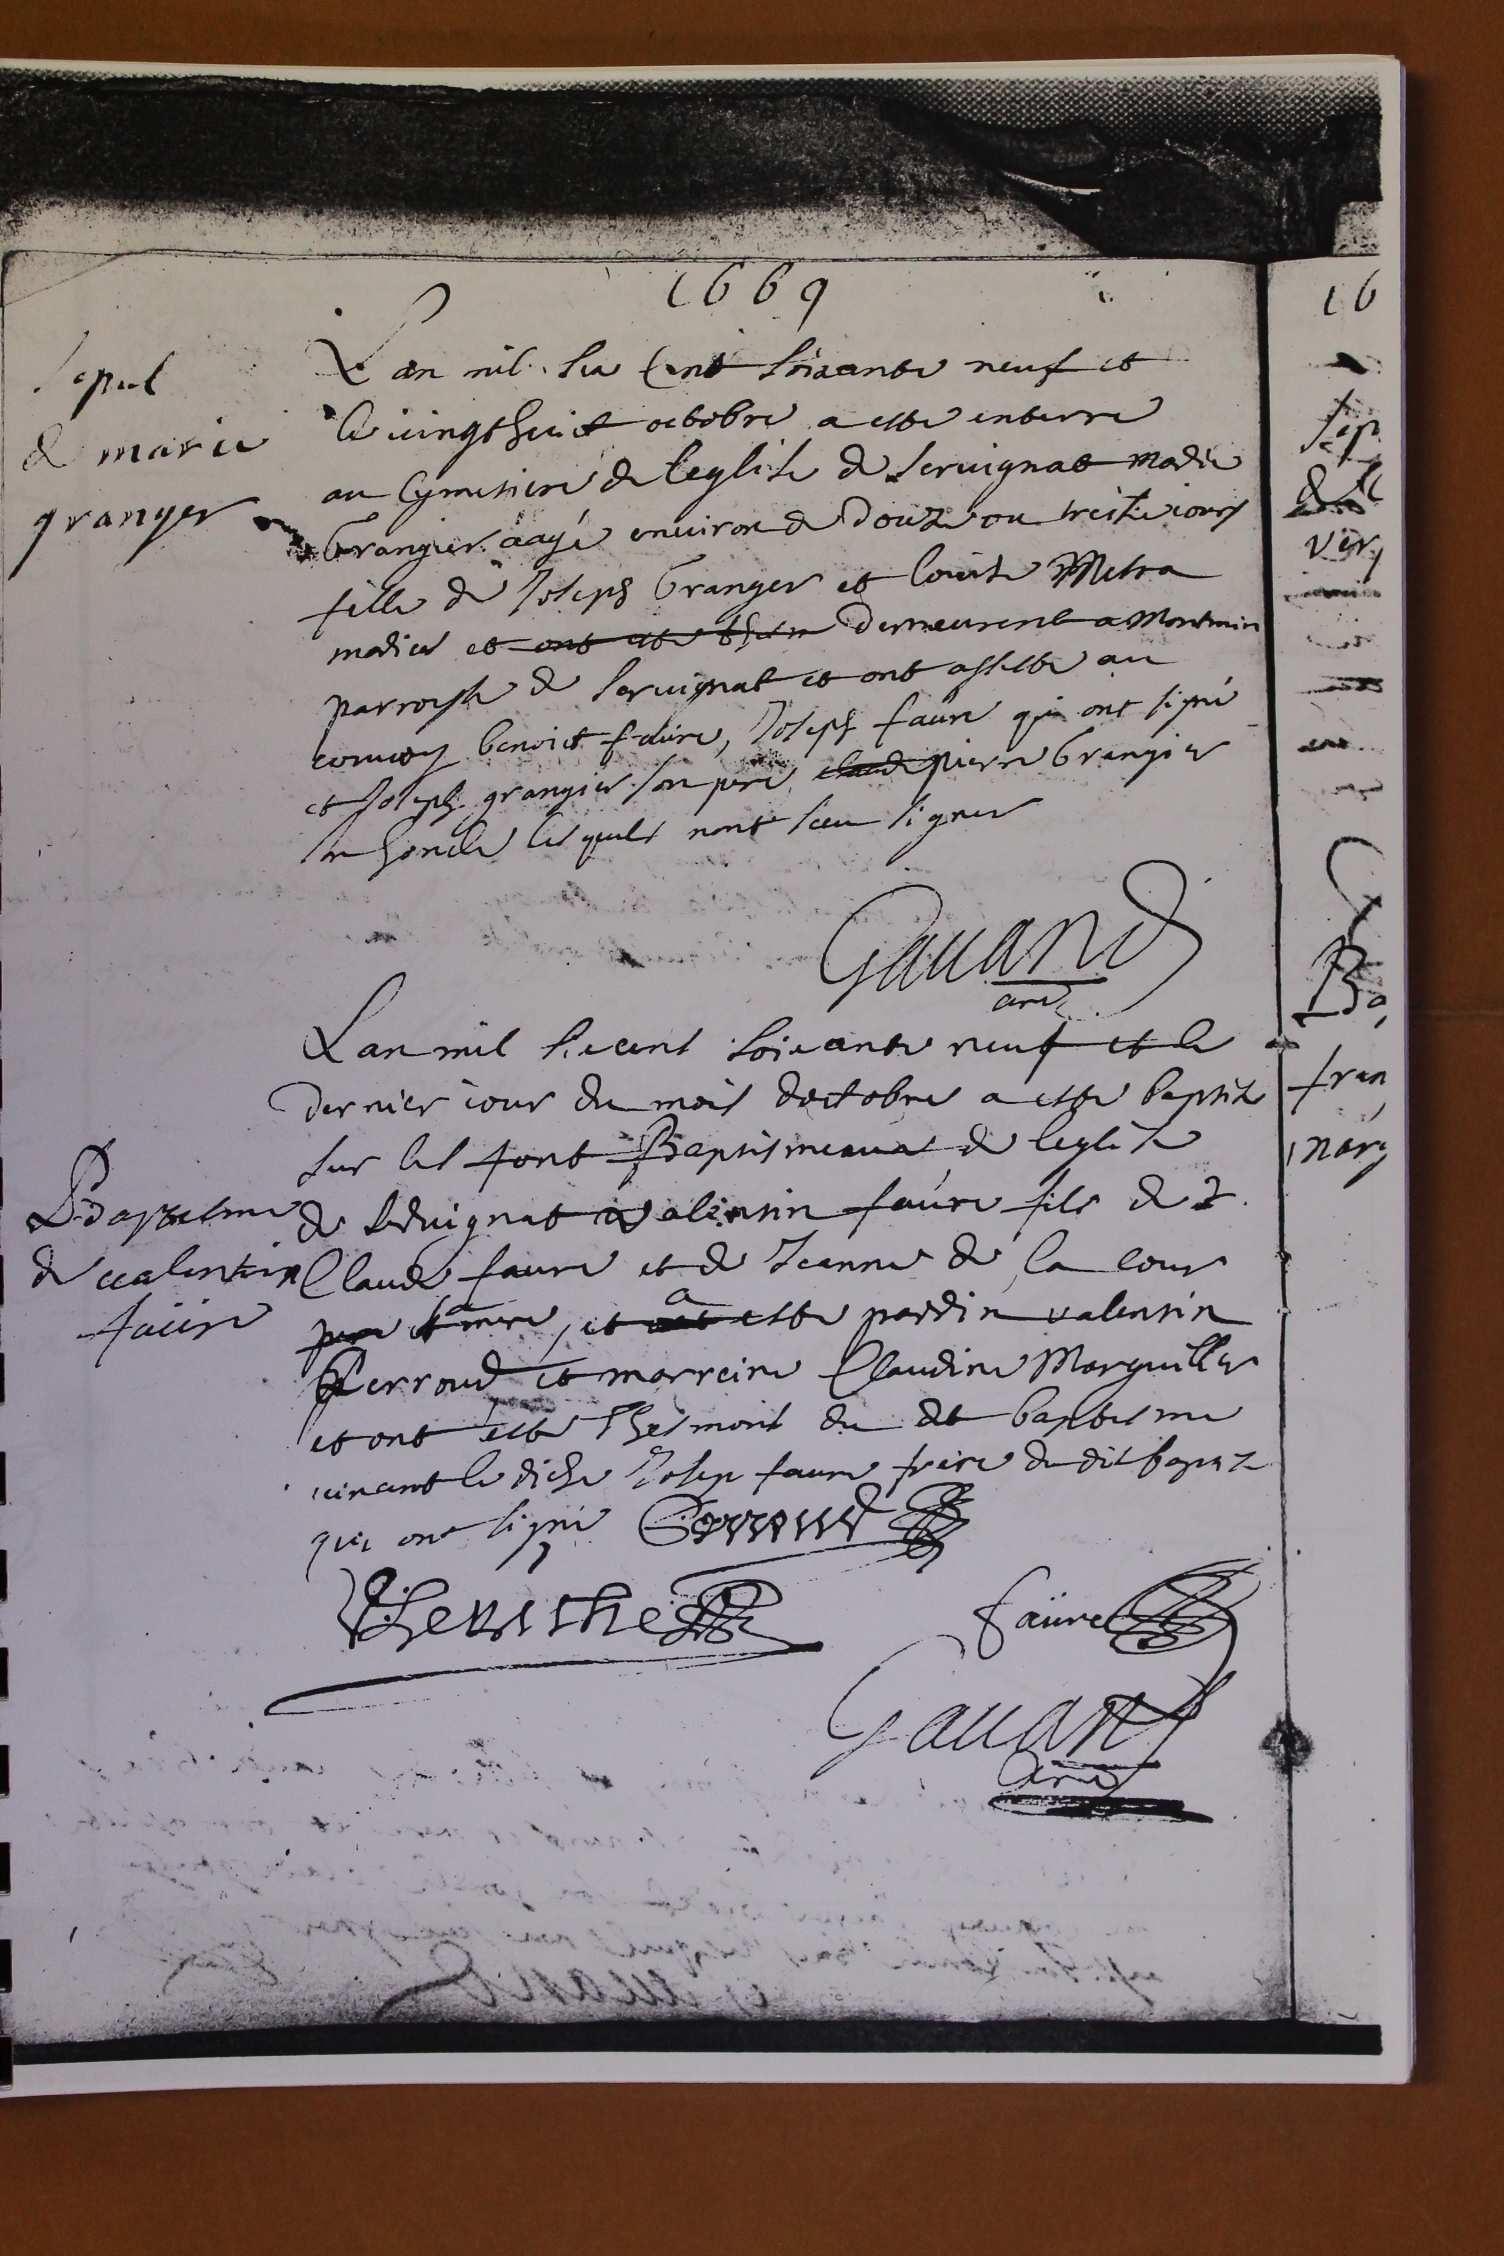 1669
Sepul
de marie
granger
Lan mil six cent soixante neuf et
le vingthuict octobre a este enterre
au Cymetiere de leglise de seruignat marie
Grangier aagé enuiron de douze ou treize iours
fille de Joseph Granger et louise Metra
mariés et ont este demeurent a Montmin
parroysse de seruignat et ont assisté au
conuoy benoict faure, Joseph faure qui ont signé
et Joseph grangier son pere, claude pierre Grangier
son honcle lesquels nont sceu signer
Gauand
curé
Lan mil sixcent soixante neuf et le
dernier iour du mois doctobre a este baptisé
sur les font Baptismeaux de leglise
de seruignat valentin faure fils de
Claude faure et de Jeanne de la cour
pere et mere, et a este parrin valentin
Perroud et marreine Claudine Marguillier
et ont este thesmoins du dit baptesme
vincent le diche Josep faure frere du dit baptisé
qui ont signé Perroud
Baptesme
de valentin
faure
faure
Gauand
curé
16
Sep
Ba
fran
marg